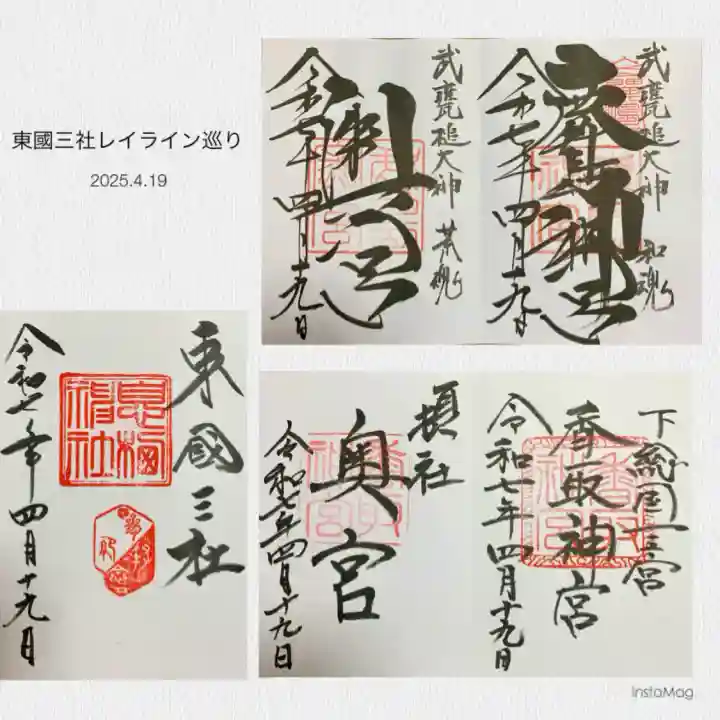 東國三社レイライン巡り
2025.4.19
武甕槌大神 和魂
鹿島神宮
令和七年四月十九日
武甕槌大神 荒魂
奥宮
令和七年四月十九日
東國三社
息栖神社
令和七年四月十九日
下総国一宮
香取神宮
令和七年四月十九日
摂社
奥宮
令和七年四月十九日
InstaMag